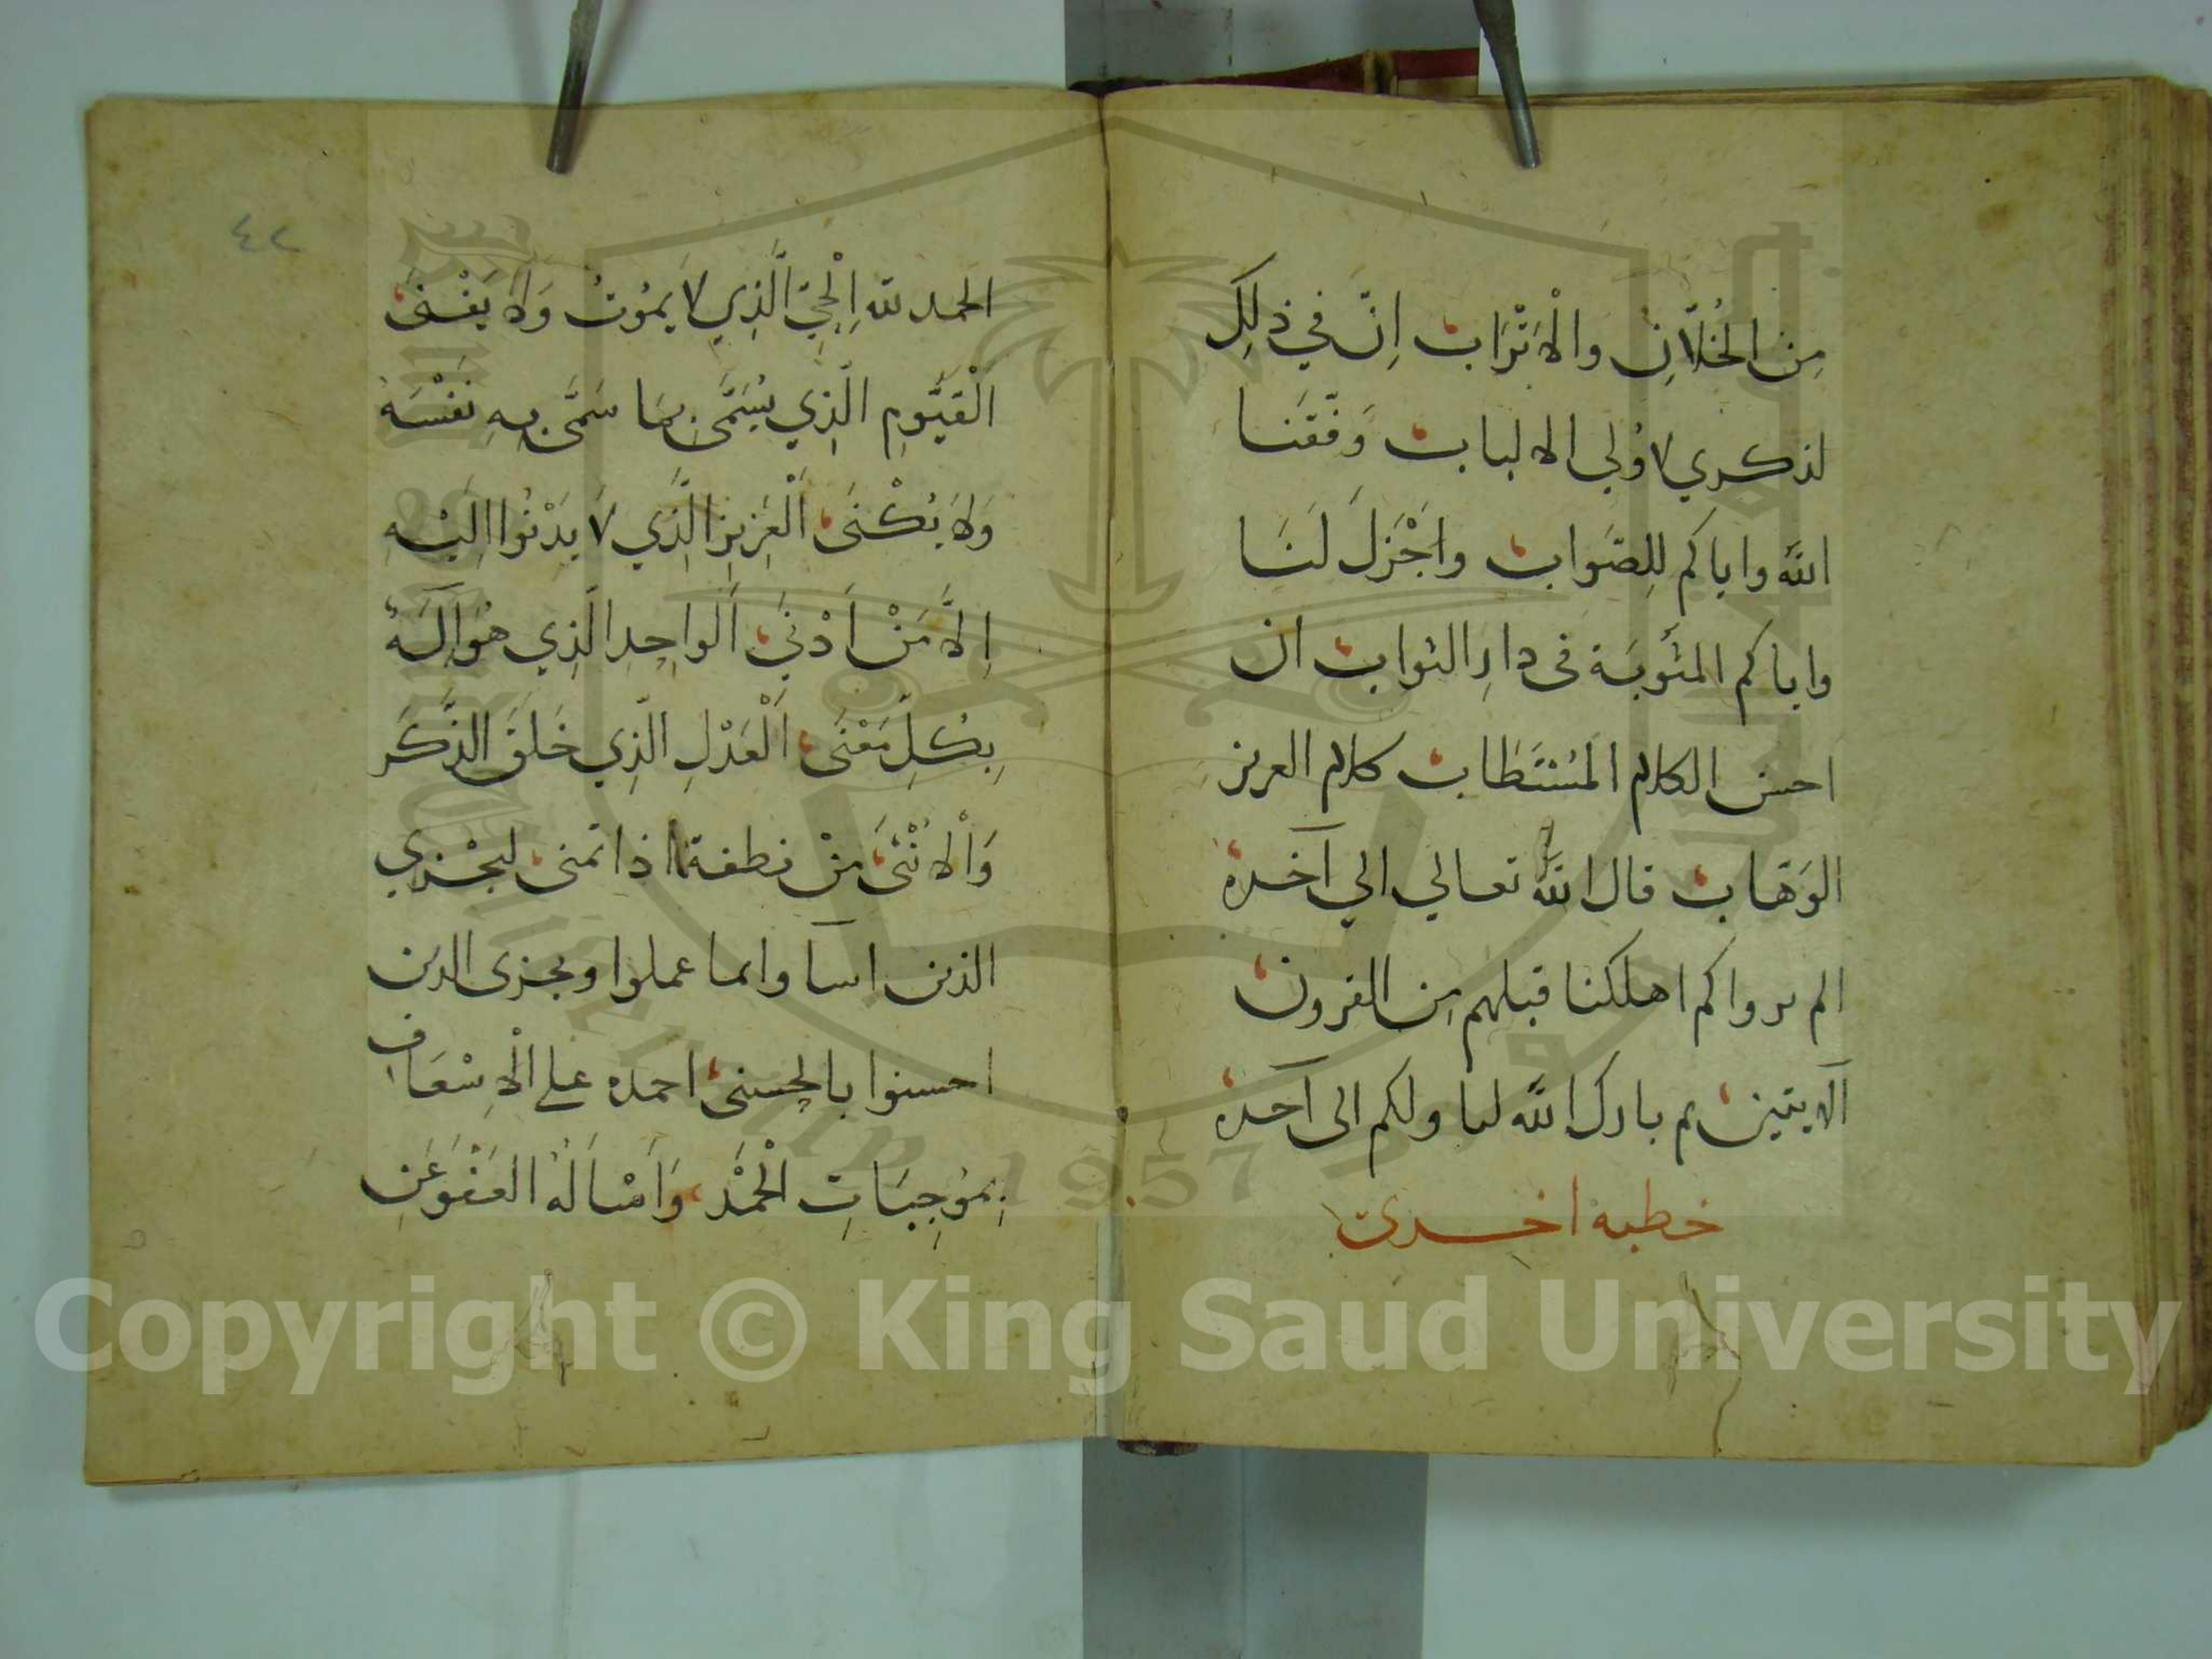 مِنَ الخُلاَّنِ والْاَتْرَاب اِنَّ في ذلِكَ
لذكري لاُولي الالباب وَفَّقَنا
اللّٰه واياكم لِلصَواب واَجْزَلَ لَنَا
واياكم المثُوبَة فى دارِ الثواب ان
احسن الكلام المُسْتَطاب كلام العزيز
الوَهّاب قال اللّٰه تعالي الي آخره
الم يروا كم اهلكنا قبلهم مِن القرون
الآيتين ثم بارك اللّٰه لنا ولكم الى آخره
خطبه اخرى
٤٢
الحمد للّه اِلْحَيِّ الَّذِي لا يمُوتُ وَلَا يَفْنىَ
اَلْقَيُّومِ الَّذِي يُسَمَّى بمَا سَمَّى بِهِ نَفْسَهُ
وَلَا يُكْنىَ اَلْعَزِيزِ الَّذِي لَا يَدْنُوا اِلَيْهِ
اِلاَّ مَنْ اَدْنىَ اَلواحِدِ الَّذِي هُوَ اِلَهُ
بِكُلِّ مَعْنىَ اَلْعَدْلِ الَّذِي خَلَقَ الذَّكَرَ
وَاْلاُنْثىَ مِنْ نطفة اذا تمنى ليجْزي
الذين اسآوا بما عملوا ويجزى الذين
احسنوا بالحسنى احمده علي الْاِسْعَافِ
بِمُوجِبَاتِ الْحَمْدِ وَاَسْاَلُهُ العَفْوَ عَنِ
Copyright © King Saud University
1957